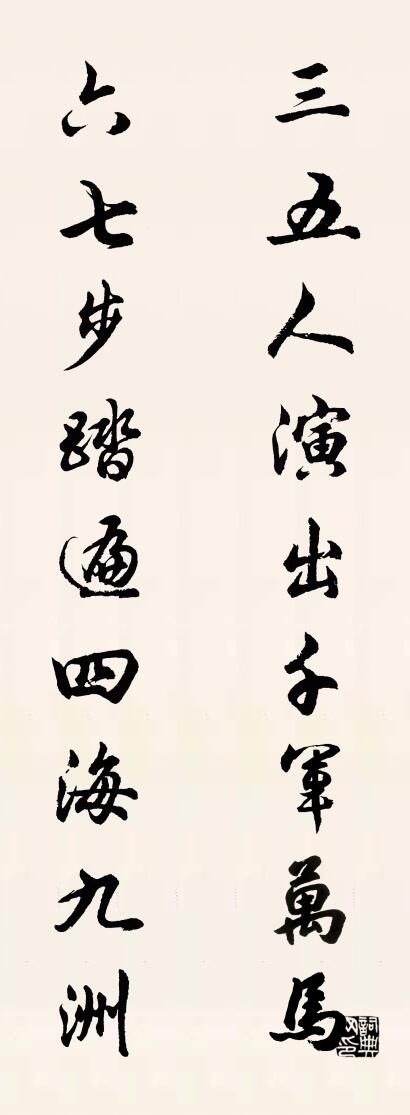 三五人演出千軍萬馬
六七步踏遍四海九洲